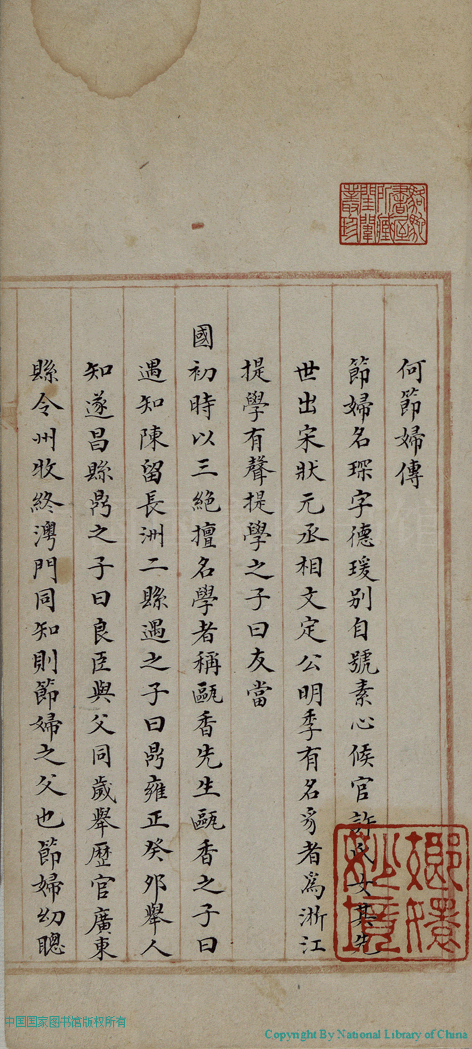 駱駝書屋所藏閨閣叢珍
何節婦傳
節婦名琛字德瑗別自號素心候官許氏女其先
世出宋狀元丞相文定公明季有名豸者爲浙江
提學有聲提學之子曰友當
國初時以三絕擅名學者稱甌香先生甌香之子曰
遇知陳留長洲二縣遇之子曰鼎雍正癸卯舉人
知遂昌縣鼎之子曰良臣與父同歲舉歷官廣東
縣令州牧終澳門同知則節婦之父也節婦幼聰
嫏嬛妙境
中国国家图书馆版权所有
Copyright By National Library of China